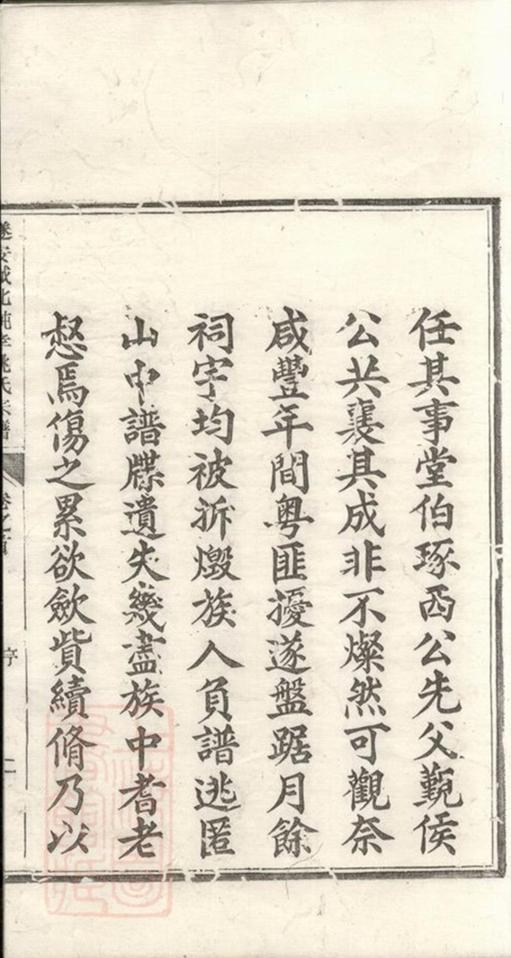 任其事堂伯琢西公先父覲侯
公共襄其成非不燦然可觀奈
咸豐年間粵匪擾遂盤踞月餘
祠宇均被拆燬族人負譜逃匿
山中譜牒遺失幾盡族中耆老
惄焉傷之累欲斂貲續脩乃以
遂安城北純孝姚氏宗譜
卷之首
序
二